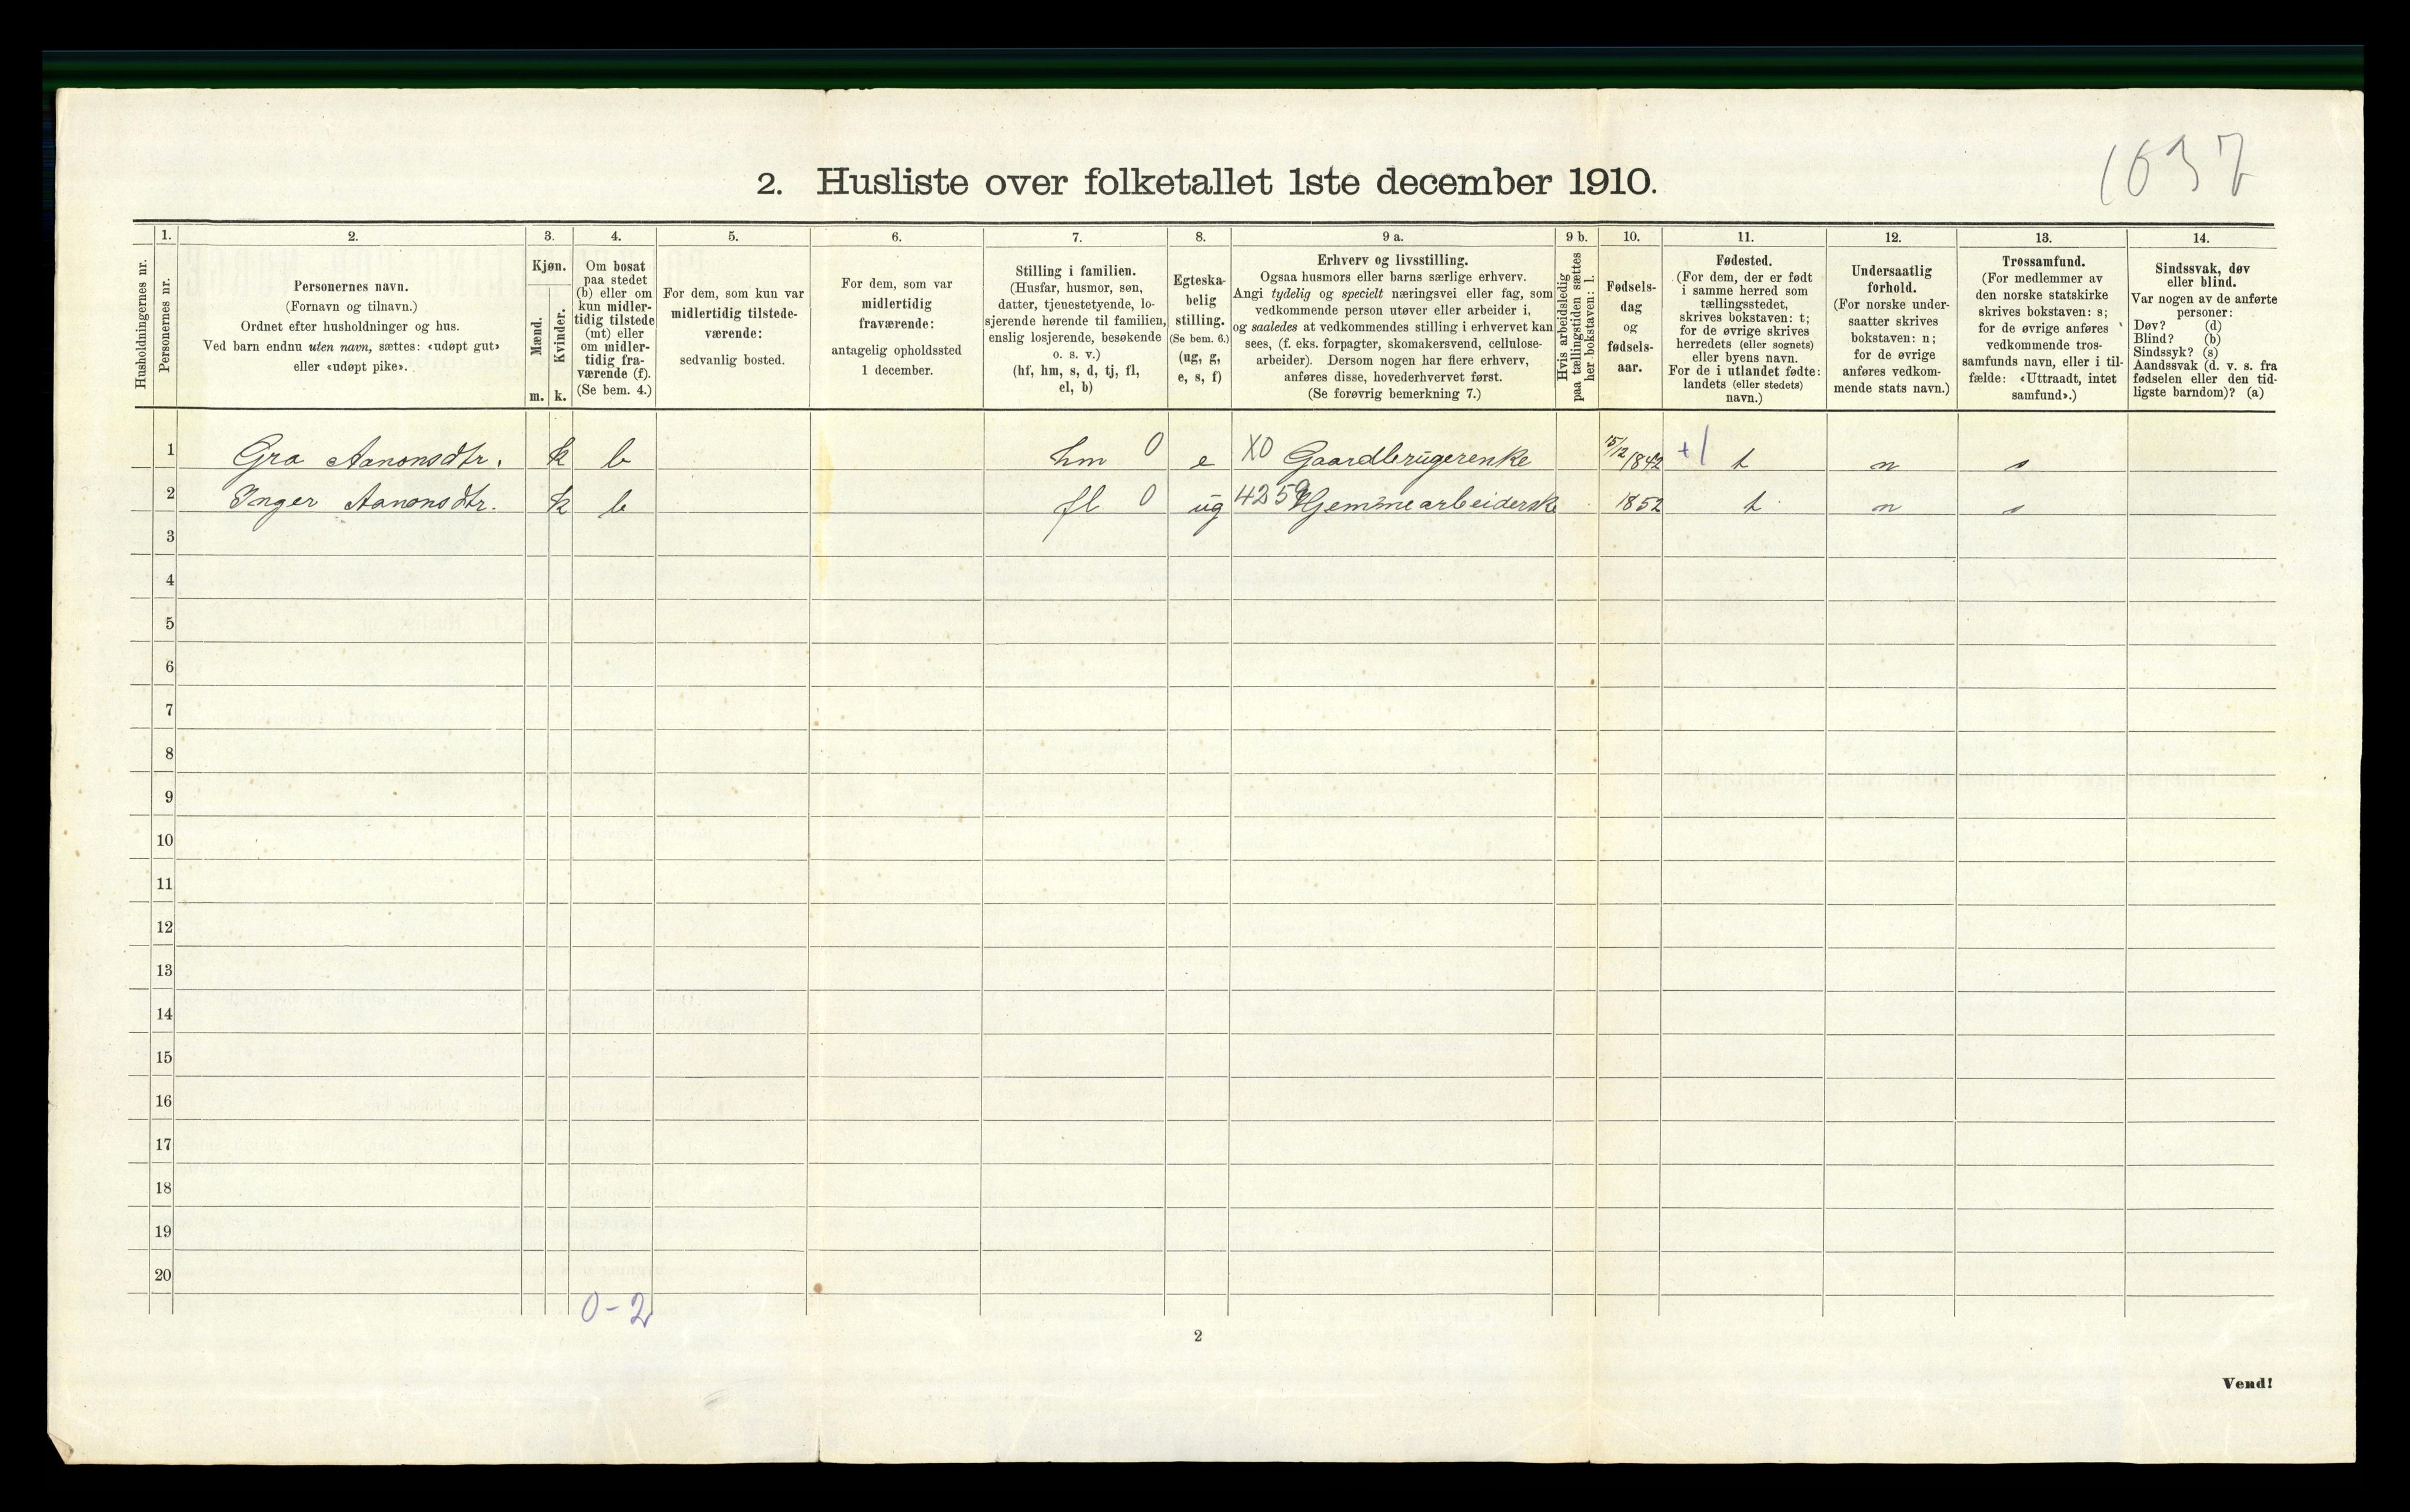 1637
2. Husliste over folketallet 1ste december 1910.
Husholdningernes nr.
1.
Personernes nr.
2.
Personernes navn.
(Fornavn og tilnavn.)
Ordnet efter husholdninger og hus.
Ved barn endnu uten navn, sættes: «udøpt gut»
eller «udøpt pike».
3.
Kjøn.
Mænd.
Kvinder.
m.
k.
4.
Om bosat
paa stedet
(b) eller om
kun midler-
tidig tilstede
(mt) eller
om midler-
tidig fra-
værende (f).
(Se bem. 4.)
5.
For dem, som kun var
midlertidig tilstede-
værende:
sedvanlig bosted.
6.
For dem, som var
midlertidig
fraværende:
antagelig opholdssted
1 december.
7.
Stilling i familien.
(Husfar, husmor, søn,
datter, tjenestetyende, lo-
sjerende hørende til familien,
enslig losjerende, besøkende
o. s. v.)
(hf, hm, s, d, tj, fl,
el, b)
8.
Egteska-
belig
stilling.
(Se bem. 6.)
(ug, g,
e, s, f)
9 a.
Erhverv og livsstilling.
Ogsaa husmors eller barns særlige erhverv.
Angi tydelig og specielt næringsvei eller fag, som
vedkommende person utøver eller arbeider i,
og saaledes at vedkommendes stilling i erhvervet kan
sees, (f. eks. forpagter, skomakersvend, cellulose-
arbeider). Dersom nogen har flere erhverv,
anføres disse, hovederhvervet først.
(Se forøvrig bemerkning 7.)
9 b.
Hvis arbeidsledig
paa tællingstiden sættes
her bokstaven: l.
10.
Fødsels-
dag
og
fødsels-
aar.
11.
Fødested.
(For dem, der er født
i samme herred som
tællingsstedet,
skrives bokstaven: t;
for de øvrige skrives
herredets (eller sognets)
eller byens navn.
For de i utlandet fødte:
landets (eller stedets)
navn.)
12.
Undersaatlig
forhold.
(For norske under-
saatter skrives
bokstaven: n;
for de øvrige
anføres vedkom-
mende stats navn.)
13.
Trossamfund.
(For medlemmer av
den norske statskirke
skrives bokstaven: s;
for de øvrige anføres
vedkommende tros-
samfunds navn, eller i til-
fælde: «Uttraadt, intet
samfund».)
14.
Sindssvak, døv
eller blind.
Var nogen av de anførte
personer:
Døv? (d)
Blind? (b)
Sindssyk? (s)
Aandssvak (d. v. s. fra
fødselen eller den tid-
ligste barndom)? (a)
1 Gro Aanonsdtr. k b hm 0 e X0 Gaardbrugerenke 15/12 1842 +1 t n s
2 Inger Aanonsdtr. k b fl 0 ug 4259 Hjemmearbeiderske 1852 t n s
3
4
5
6
7
8
9
10
11
12
13
14
15
16
17
18
19
20
0-2
2
Vend!